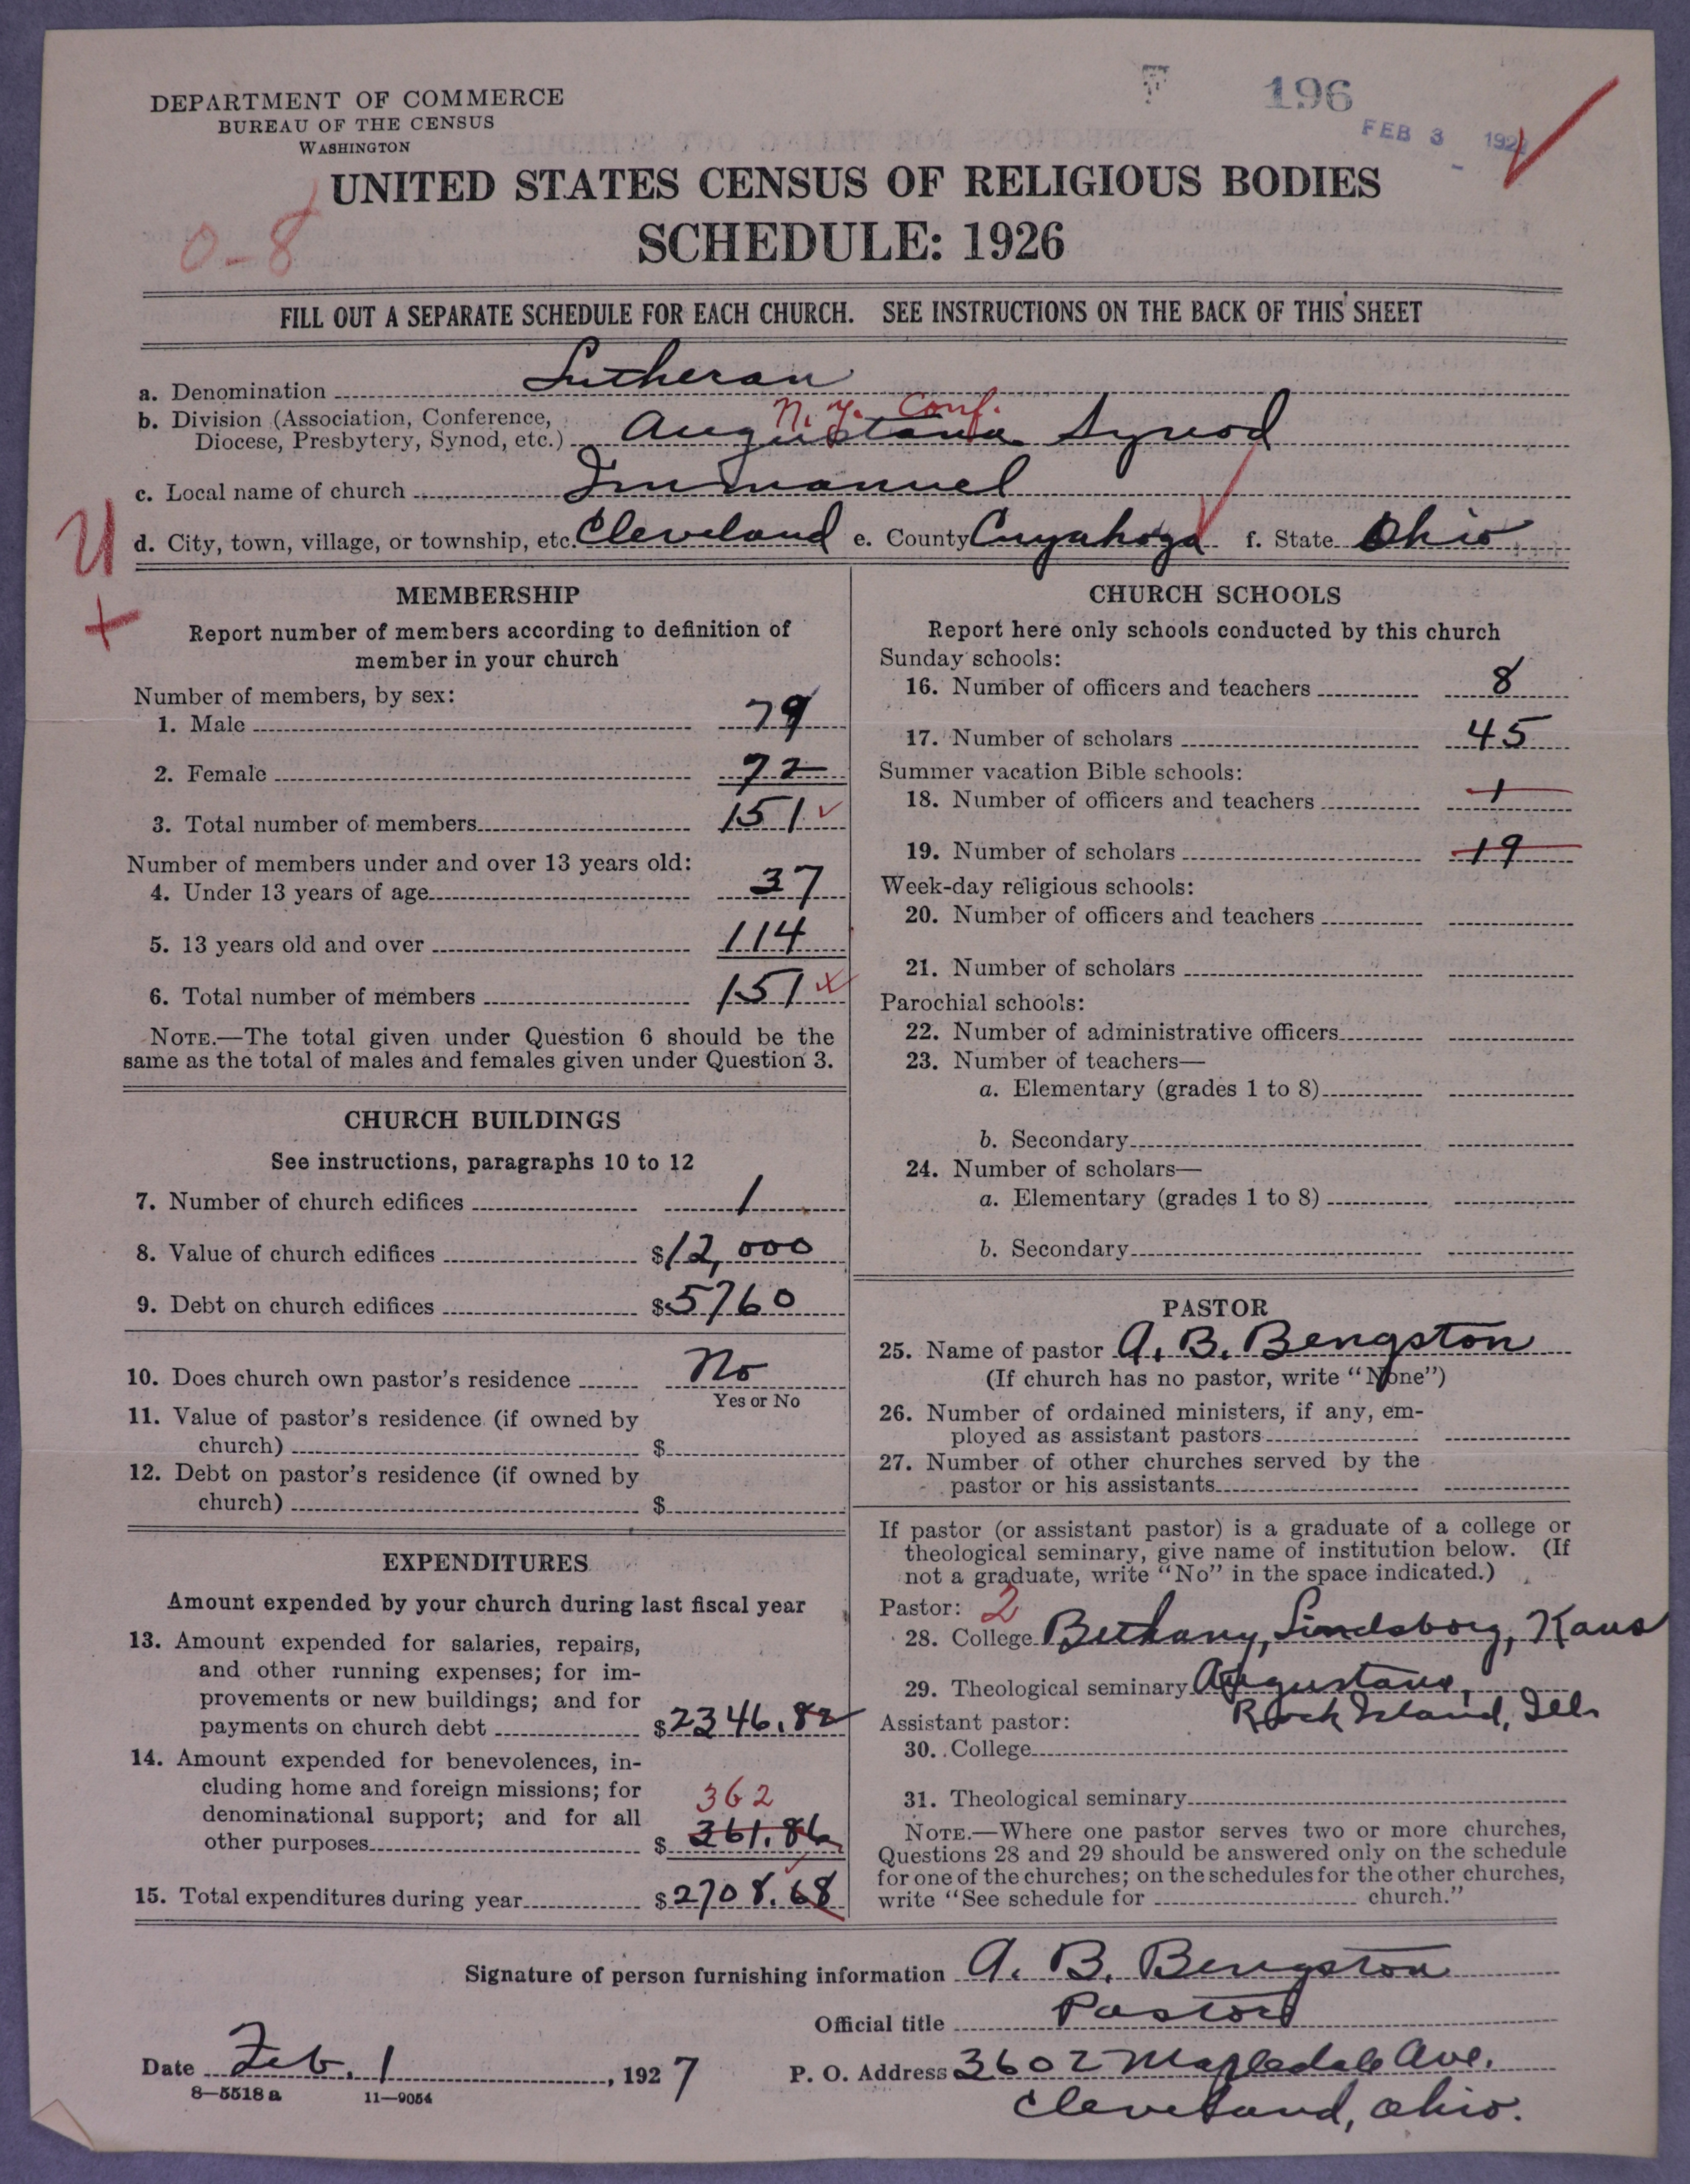 DEPARTMENT OF COMMERCE
BUREAU OF THE CENSUS
WASHINGTON
196
FEB 3 192
UNITED STATES CENSUS OF RELIGIOUS BODIES
SCHEDULE: 1926
0-8
FILL OUT A SEPARATE SCHEDULE FOR EACH CHURCH. SEE INSTRUCTIONS ON THE BACK OF THIS SHEET
a. Denomination Lutheran
N.Y. Conf.
b. Division (Association, Conference,
Diocese, Presbytery, Synod, etc.) Augustana Synod
c. Local name of church Immanuel
d. City, town, village, or township, etc. Cleveland e. County Cuyahoga f. State Ohio
MEMBERSHIP
Report number of members according to definition of
member in your church
Number of members, by sex:
1. Male 79
2. Female 72
3. Total number of members 151
Number of members under and over 13 years old:
4. Under 13 years of age 37
5. 13 years old and over 114
6. Total number of members 151
NOTE.—The total given under Question 6 should be the
same as the total of males and females given under Question 3.
CHURCH BUILDINGS
See instructions, paragraphs 10 to 12
7. Number of church edifices 1
8. Value of church edifices $12,000
9. Debt on church edifices $5760
10. Does church own pastor's residence No
Yes or No
11. Value of pastor's residence (if owned by
church) $
12. Debt on pastor's residence (if owned by
church) $
EXPENDITURES
Amount expended by your church during last fiscal year
13. Amount expended for salaries, repairs,
and other running expenses; for im-
provements or new buildings; and for
payments on church debt $2346.82
14. Amount expended for benevolences, in-
cluding home and foreign missions; for 362
denominational support; and for all
other purposes $361.86
15. Total expenditures during year $2708.68
CHURCH SCHOOLS
Report here only schools conducted by this church
Sunday schools:
16. Number of officers and teachers 8
17. Number of scholars 45
Summer vacation Bible schools:
18. Number of officers and teachers 1
19. Number of scholars 19
Week-day religious schools:
20. Number of officers and teachers
21. Number of scholars
Parochial schools:
22. Number of administrative officers
23. Number of teachers—
a. Elementary (grades 1 to 8)
b. Secondary
24. Number of scholars—
a. Elementary (grades 1 to 8)
b. Secondary
PASTOR
25. Name of pastor A. B. Bengston
(If church has no pastor, write "None")
26. Number of ordained ministers, if any, em-
ployed as assistant pastors
27. Number of other churches served by the
pastor or his assistants
If pastor (or assistant pastor) is a graduate of a college or
theological seminary, give name of institution below. (If
not a graduate, write "No" in the space indicated.)
Pastor: 2
28. College Bethany, Lindsborg, Kans
29. Theological seminary Augustana,
Rock Island, Ill.
Assistant pastor:
30. College
31. Theological seminary
NOTE.—Where one pastor serves two or more churches,
Questions 28 and 29 should be answered only on the schedule
for one of the churches; on the schedules for the other churches,
write "See schedule for church."
Signature of person furnishing information A. B. Bengston
Official title Pastor
Date Feb. 1, 1927
P. O. Address 3602 Mapledale Ave.
Cleveland, Ohio.
8—5518 a 11—9054